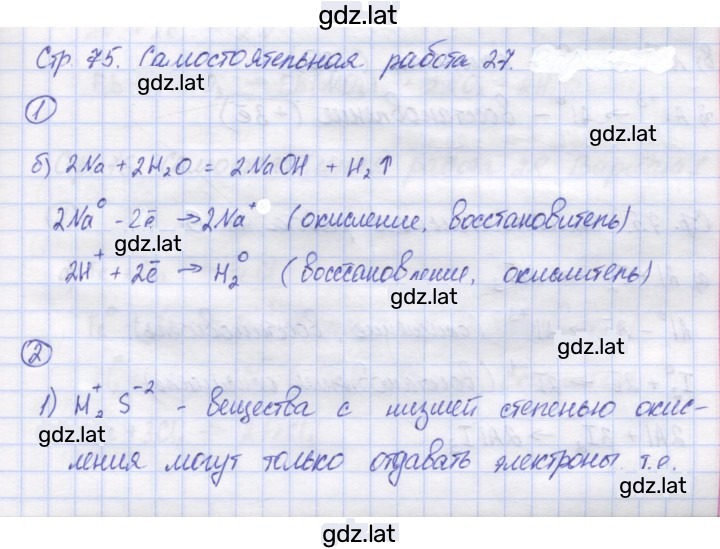 gdz.lat
Стр. 75. Самостоятельная работа 27.
gdz.lat
1
gdz.lat
б) 2Na + 2H₂O = 2NaOH + H₂↑
2Na⁰ - 2ē → 2Na⁺ (окисление, восстановитель)
gdz.lat
2H⁺ + 2ē → H₂⁰ (восстановление, окислитель)
gdz.lat
2
gdz.lat
1) H₂⁺ S⁻² - вещества с низшей степенью окис-
gdz.lat
ления могут только отдавать электроны т.е.
gdz.lat
gdz.lat